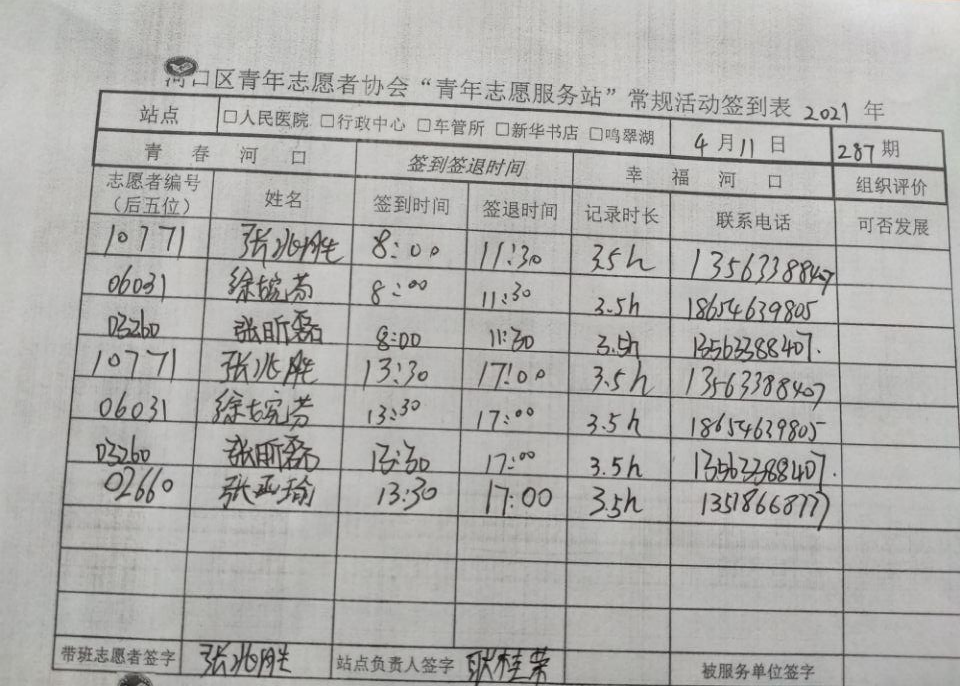 河口区青年志愿者协会“青年志愿服务站”常规活动签到表 2021 年
站点 □人民医院 □行政中心 □车管所 □新华书店 □鸣翠湖 4月11日 287期
青春河口 签到签退时间 幸福河口 组织评价
志愿者编号（后五位） 姓名 签到时间 签退时间 记录时长 联系电话 可否发展
10771 张兆胜 8:00 11:30 3.5h 13563388407
06031 徐婉芬 8:00 11:30 3.5h 18654639805
03260 张昕磊 8:00 11:30 3.5h 13563388407.
10771 张兆胜 13:30 17:00 3.5h 13563388407
06031 徐婉芬 13:30 17:00 3.5h 18654639805
03260 张昕磊 13:30 17:00 3.5h 13563388407.
02660 张亚瑜 13:30 17:00 3.5h
带班志愿者签字 张兆胜 站点负责人签字 耿桂荣 被服务单位签字